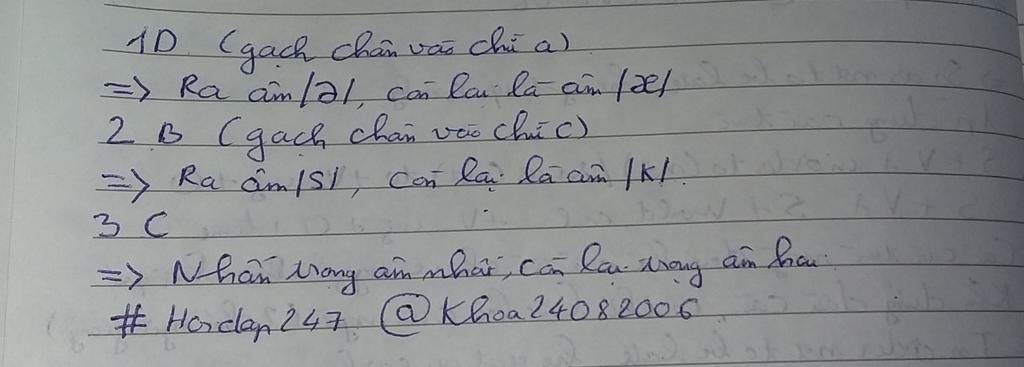 1D (gạch chân vào chữ a)
=> Ra âm /ə/, còn lại là âm /æ/
2 B (gạch chân vào chữ c)
=> Ra âm /s/, còn lại là âm /k/.
3 C
=> Nhấn trọng âm nhất, còn lại trọng âm hai.
# Hoidap247 @Khoa24082006